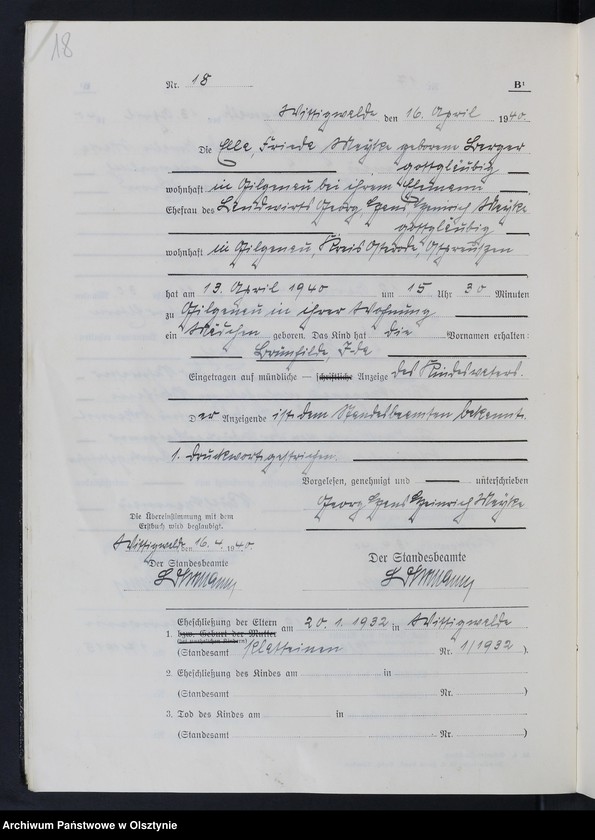 18
Nr. 18 B¹
Wittigwalde den 16. April 1940.
Die Ella, Frieda Meyke geborene Berger
gottgläubig
wohnhaft in Gilgenau bei ihrem Ehemann
Ehefrau des Landwirts Georg Hans Heinrich Meyke
gottgläubig
wohnhaft in Gilgenau, Kreis Osterode, Ostpreußen
hat am 13. April 1940 um 15 Uhr 30 Minuten
zu Gilgenau in ihrer Wohnung
ein Mädchen geboren. Das Kind hat die Vornamen erhalten:
Brunhilde, Ida
Eingetragen auf mündliche — schriftliche Anzeige des Kindesvaters.
Der Anzeigende ist dem Standesbeamten bekannt.
1. Druckwort gestrichen.
Vorgelesen, genehmigt und unterschrieben
Georg Hans Heinrich Meyke
Die Übereinstimmung mit dem
Erstbuch wird beglaubigt.
Wittigwalde, den 16.4. 1940.
Der Standesbeamte
Der Standesbeamte
1. Eheschließung der Eltern
bzw. Geburt der Mutter
am 20.1.1932 in Wittigwalde
(Standesamt Nr. 1/1932).
2. Eheschließung des Kindes am in
(Standesamt Nr. )
3. Tod des Kindes am in
(Standesamt Nr. )
Archiwum Państwowe w Olsztynie